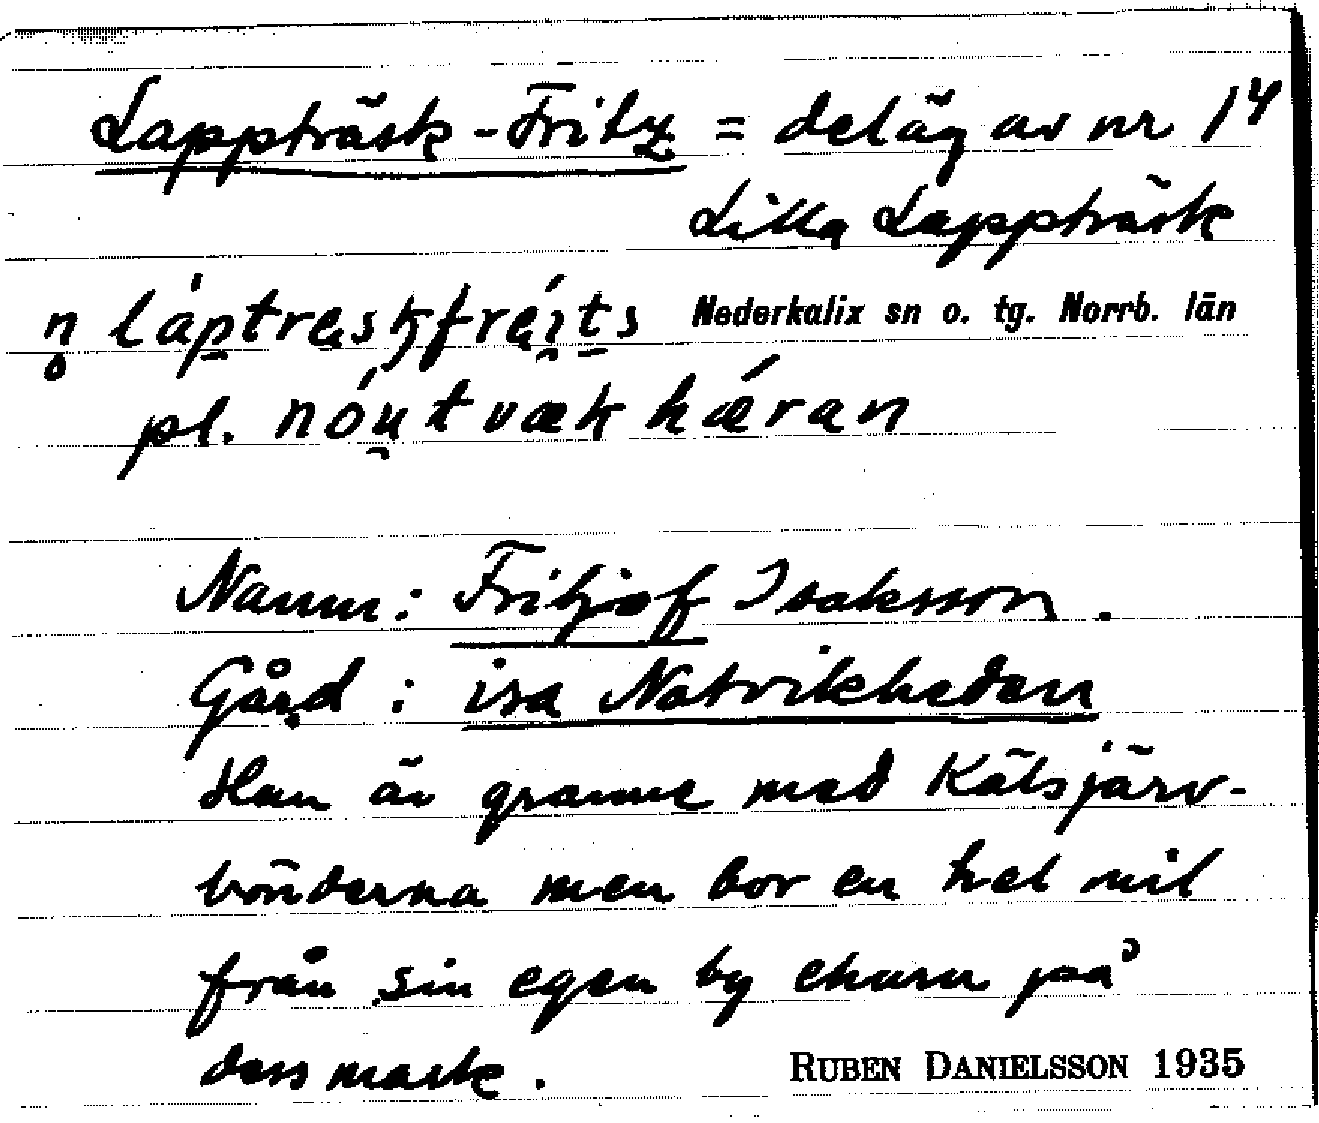 Lappträsk-Fritz = deläg av nr 1⁴
Lilla Lappträsk
n̥ láptræskfréi̯ts Nederkalix sn o. tg. Norrb. län
pl. nóu̯tvækhǽran
Namn: Fritjof Isaksson.
Gård: isa Notvikheden
Han är granne med Kätsjärv-
bönderna men bor en hel mil
från sin egen by ehuru på
dess mark.
RUBEN DANIELSSON 1935